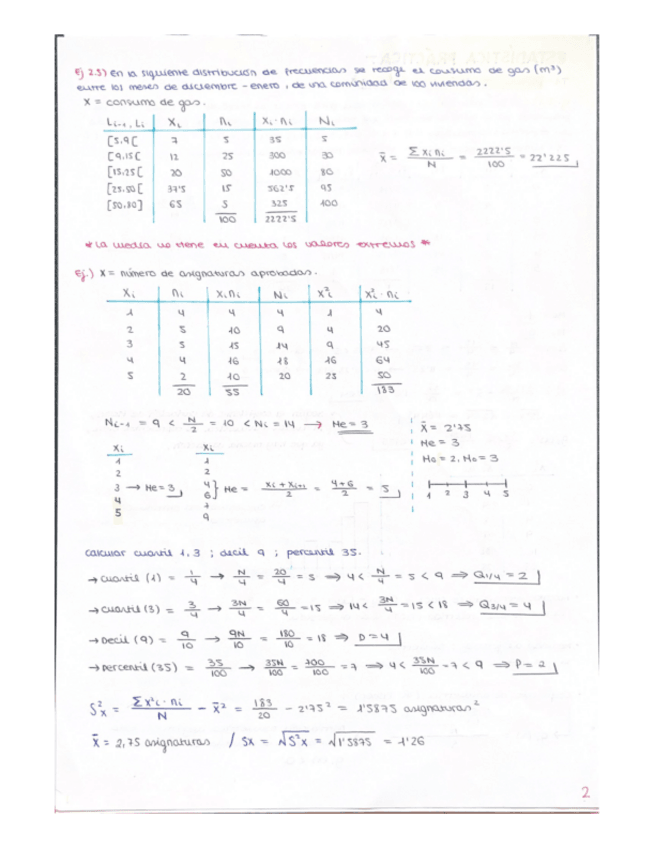 Ej 2.3) En la siguiente distribución de frecuencias se recoge el consumo de gas (m³)
entre los meses de diciembre - enero, de una comunidad de 100 viviendas.
X = consumo de gas.
Li-1, Li | Xi | ni | Xi·ni | Ni
[5,9[ 7 5 35 5
[9,15[ 12 25 300 30
[15,25[ 20 50 1000 80
[25,50[ 37'5 15 562'5 95
[50,80] 65 5 325 100
100 2222'5
x̄ = Σ xi ni / N = 2222'5 / 100 = 22'225
* La media no tiene en cuenta los valores extremos *
Ej.) X = número de asignaturas aprobadas.
Xi | ni | Xi ni | Ni | X²i | X²i · ni
1 4 4 4 1 4
2 5 10 9 4 20
3 5 15 14 9 45
4 4 16 18 16 64
5 2 10 20 25 50
20 55 183
Ni-1 = 9 < N/2 = 10 < Ni = 14 → Me = 3
x̄ = 2'75
Me = 3
Mo = 2, Mo = 3
1 2 3 4 5
Xi
1
2
3 → Me = 3
4
5
Xi
1
2
4
6 } Me = xi + xi+1 / 2 = 4+6 / 2 = 5
7
9
calcular cuartil 1, 3 ; decil 9 ; percentil 35.
→ cuartil (1) = 1/4 → N/4 = 20/4 = 5 → 4 < N/4 = 5 < 9 ⇒ Q1/4 = 2
→ cuartil (3) = 3/4 → 3N/4 = 60/4 = 15 ⇒ 14 < 3N/4 = 15 < 18 ⇒ Q3/4 = 4
→ Decil (9) = 9/10 → 9N/10 = 180/10 = 18 ⇒ D = 4
→ percentil (35) = 35/100 → 35N/100 = 700/100 = 7 ⇒ 4 < 35N/100 = 7 < 9 ⇒ P = 2
S²x = Σ x²i · ni / N - x̄² = 183/20 - 2'75² = 1'5875 asignaturas²
x̄ = 2,75 asignaturas / Sx = √S²x = √1'5875 = 1'26
2